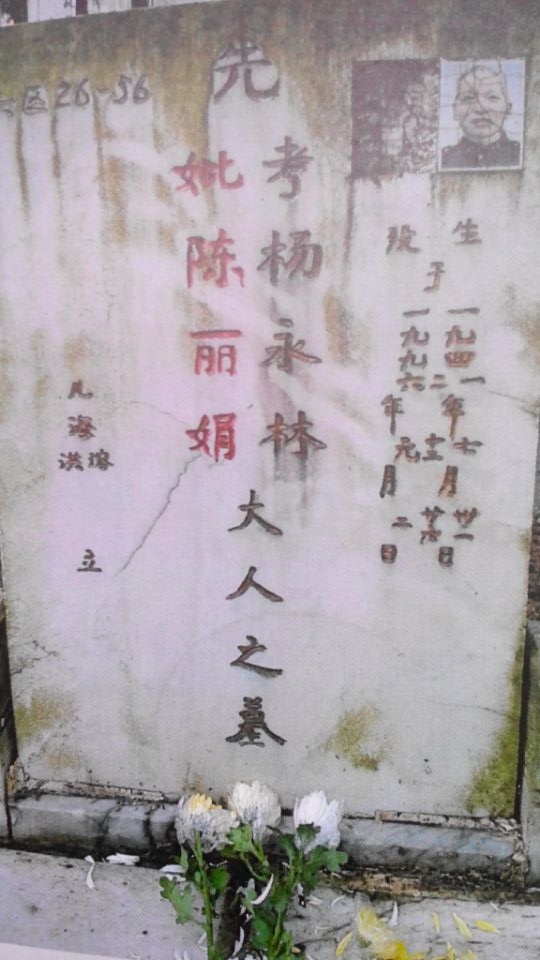 区26-56
先
生 殁
于
一九四一年七月卅一日
一九九六年元月二日
考杨永林
妣陈丽娟
大人之墓
儿海
洪
立